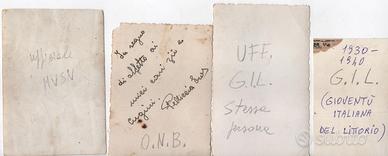 ufficiale
MVSN
In segno
di affetto ai
miei cari zii e
cugini
O.N.B.
UFF.
G.I.L.
Stessa
persona
1930-
1940
G.I.L.
(GIOVENTÙ
ITALIANA
DEL LITTORIO)
subito